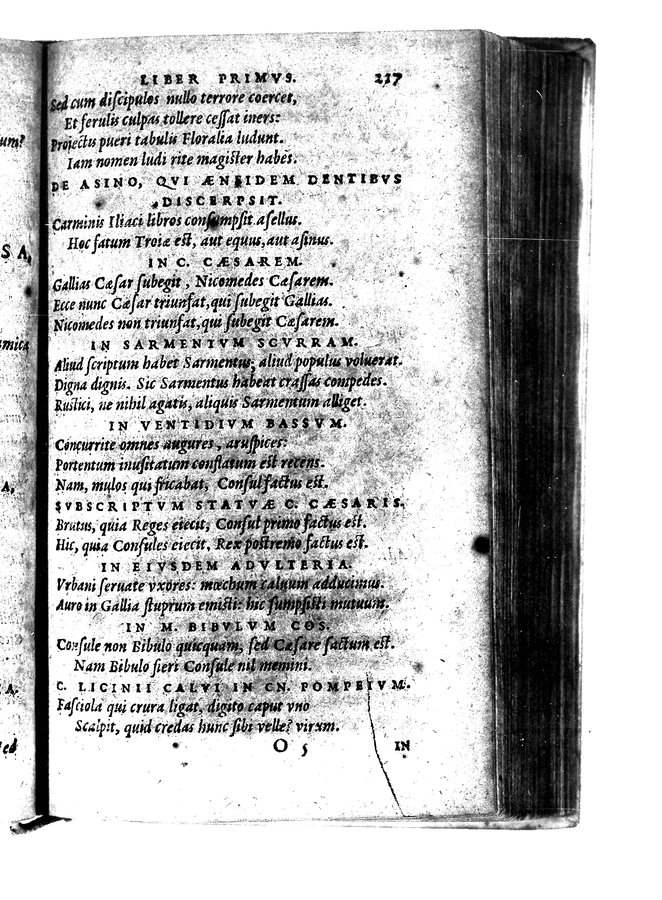 LIBER PRIMVS. 217
Sed cum diſcipulos nullo terrore coercet,
Et ferulis culpas tollere ceſſat iners:
Proiectis pueri tabulis Floralia ludunt.
Iam nomen ludi rite magiſter habes.
DE ASINO, QVI ÆNEIDEM DENTIBVS
DISCERPSIT.
Carminis Iliaci libros conſumpſit aſellus.
Hoc fatum Troiæ eſt, aut equus, aut aſinus.
IN C. CÆSAREM.
Gallias Cæſar ſubegit, Nicomedes Cæſarem.
Ecce nunc Cæſar triunfat, qui ſubegit Gallias.
Nicomedes non triunfat, qui ſubegit Cæſarem.
IN SARMENTVM SCVRRAM.
Aliud ſcriptum habet Sarmentus, aliud populus voluerat.
Digna dignis. Sic Sarmentus habeat craſſas compedes.
Ruſtici, ne nihil agatis, aliquis Sarmentum alliget.
IN VENTIDIVM BASSVM.
Concurrite omnes augures, aruſpices:
Portentum inuſitatum conflatum eſt recens.
Nam, mulos qui fricabat, Conſul factus eſt.
SVBSCRIPTVM STATVÆ C. CÆSARIS.
Brutus, quia Reges eiecit, Conſul primo factus eſt.
Hic, quia Conſules eiecit, Rex poſtremo factus eſt.
IN EIVSDEM ADVLTERIA.
Vrbani ſeruate vxores: mœchum caluum adducimus.
Auro in Gallia ſtuprum emiſti: hic ſumpſiſti mutuum.
IN M. BIBVLVM COS.
Conſule non Bibulo quicquam, ſed Cæſare factum eſt.
Nam Bibulo fieri Conſule nil memini.
C. LICINII CALVI IN CN. POMPEIVM.
Faſciola qui crura ligat, digito caput vno
Scalpit, quid credas hunc ſibi velle? virum.
O 5 IN